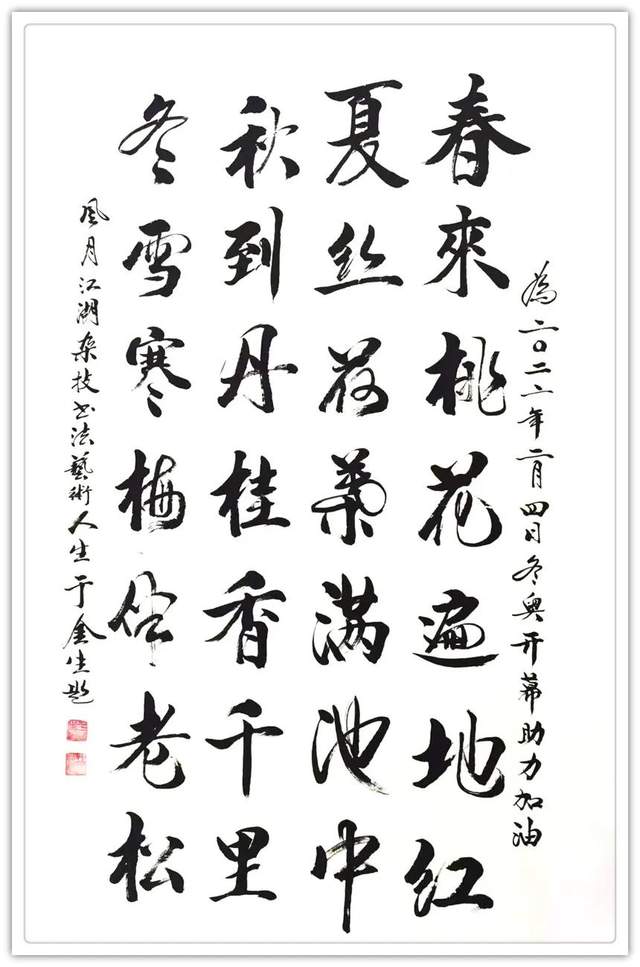 為二〇二二年二月四日冬奥开幕助力加油
春來桃花遍地红
夏丝荷叶满池中
秋到丹桂香千里
冬雪寒梅伴老松
風月江湖杂技书法藝術人生于金生题